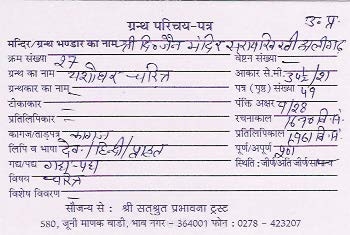 उ. प्र.
ग्रन्थ परिचय-पत्र
मन्दिर/ग्रन्थ भण्डार का नाम श्री दि० जैन मंदिर अलीगढ़
क्रम संख्या 27 वेष्टन संख्या
ग्रन्थ का नाम यशोधर चरित्र आकार से.मी.
ग्रन्थकार का नाम पत्र (पृष्ठ) संख्या 59
टीकाकार पंक्ति अक्षर 9/28
प्रतिलिपिकार रचनाकाल 1670 वि. सं.
कागज/ताड़पत्र कागज प्रतिलिपिकाल 1961 वि. सं.
लिपि व भाषा देव. / हिन्दी / प्राकृत पूर्ण/अपूर्ण पूर्ण
गद्य/पद्य गद्य-पद्य स्थिति : जीर्ण/अति जीर्ण/सामान्य
विषय चरित्र
विशेष विवरण
सौजन्य से : श्री सत्श्रुत प्रभावना ट्रस्ट
580, जूनी माणक बाडी, भाव नगर - 364001 फोन : 0278 - 423207